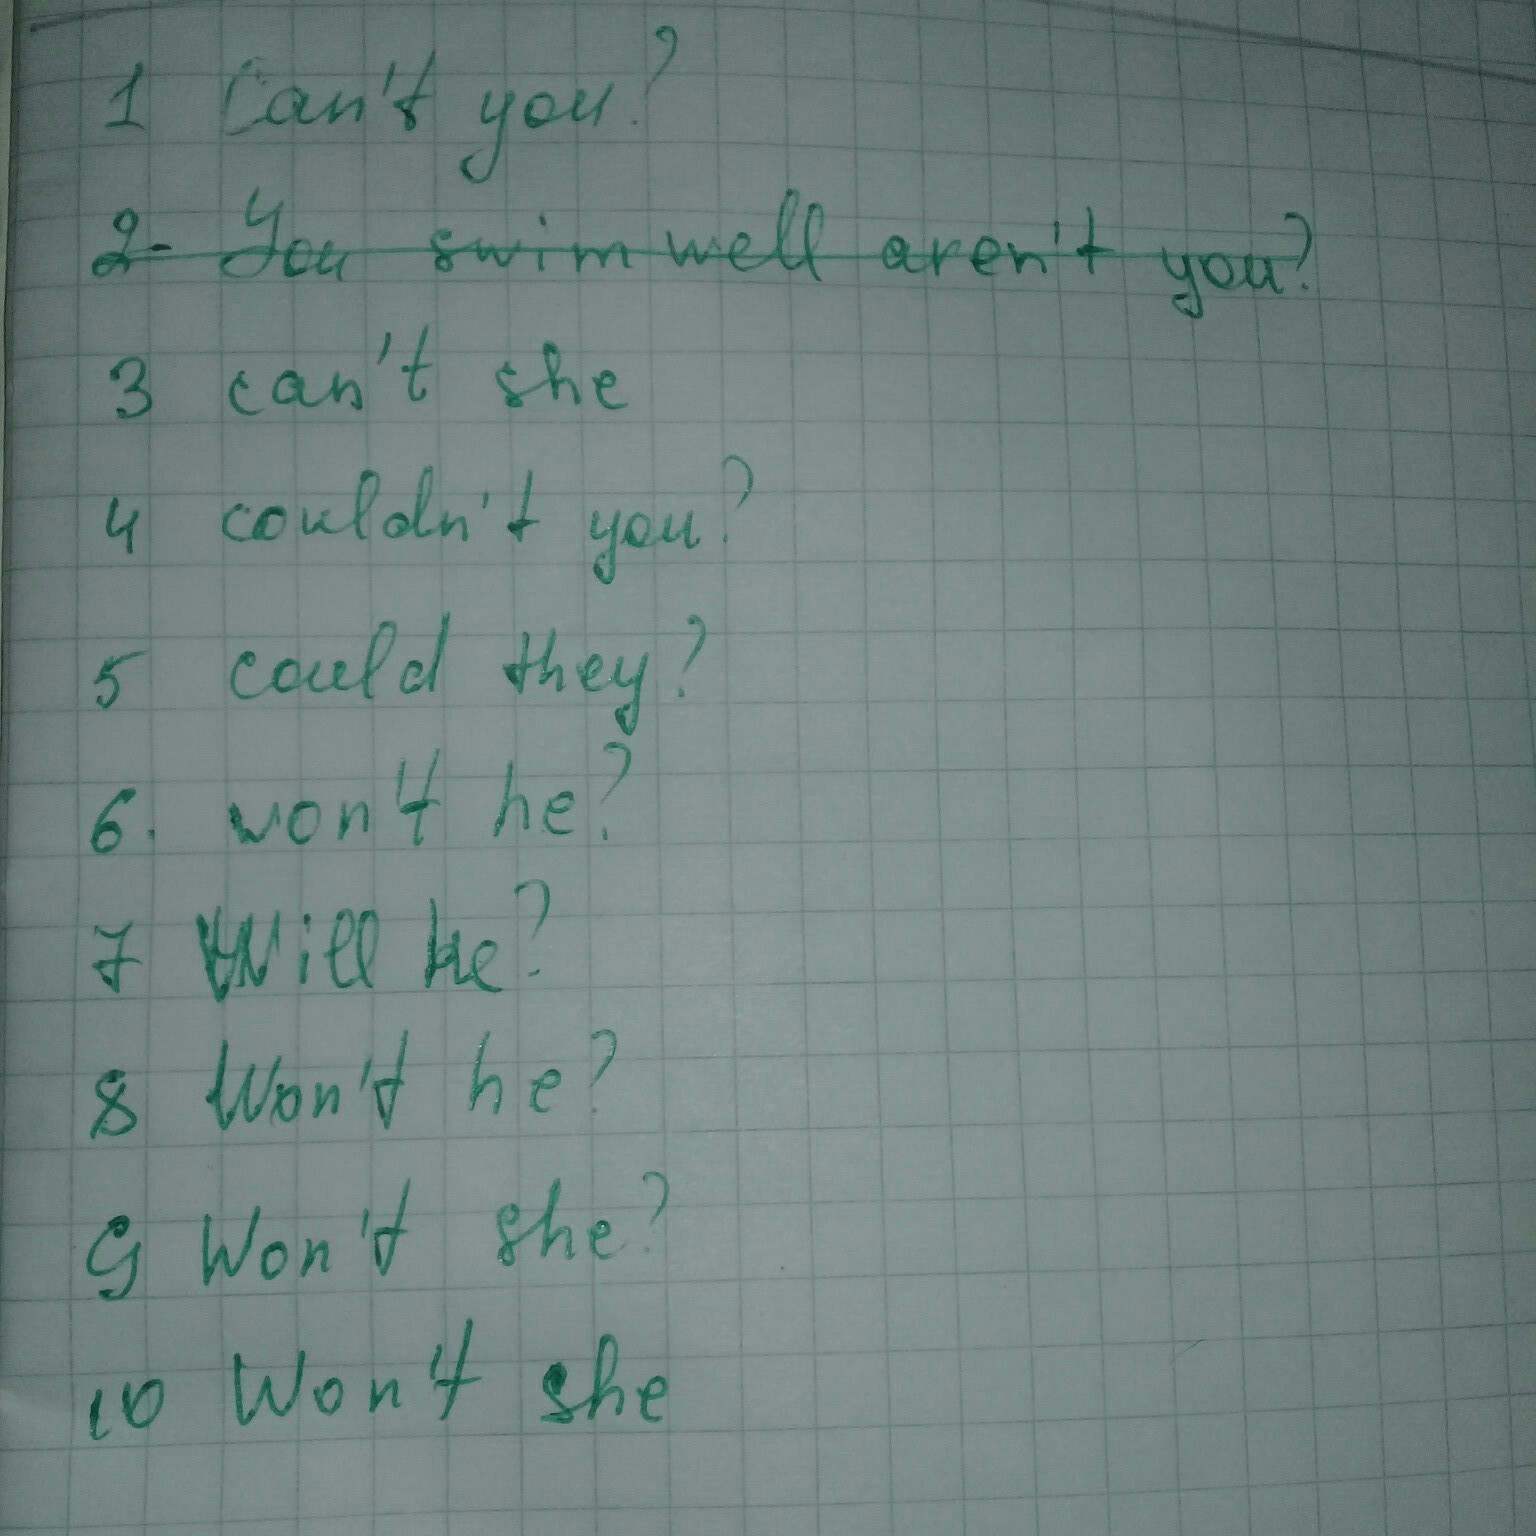 1 Can't you?
2- You swim well aren't you?
3 can't she
4 couldn't you?
5 could they?
6. won't he?
7 Will he?
8 Won't he?
9 Won't she?
10 Won't she